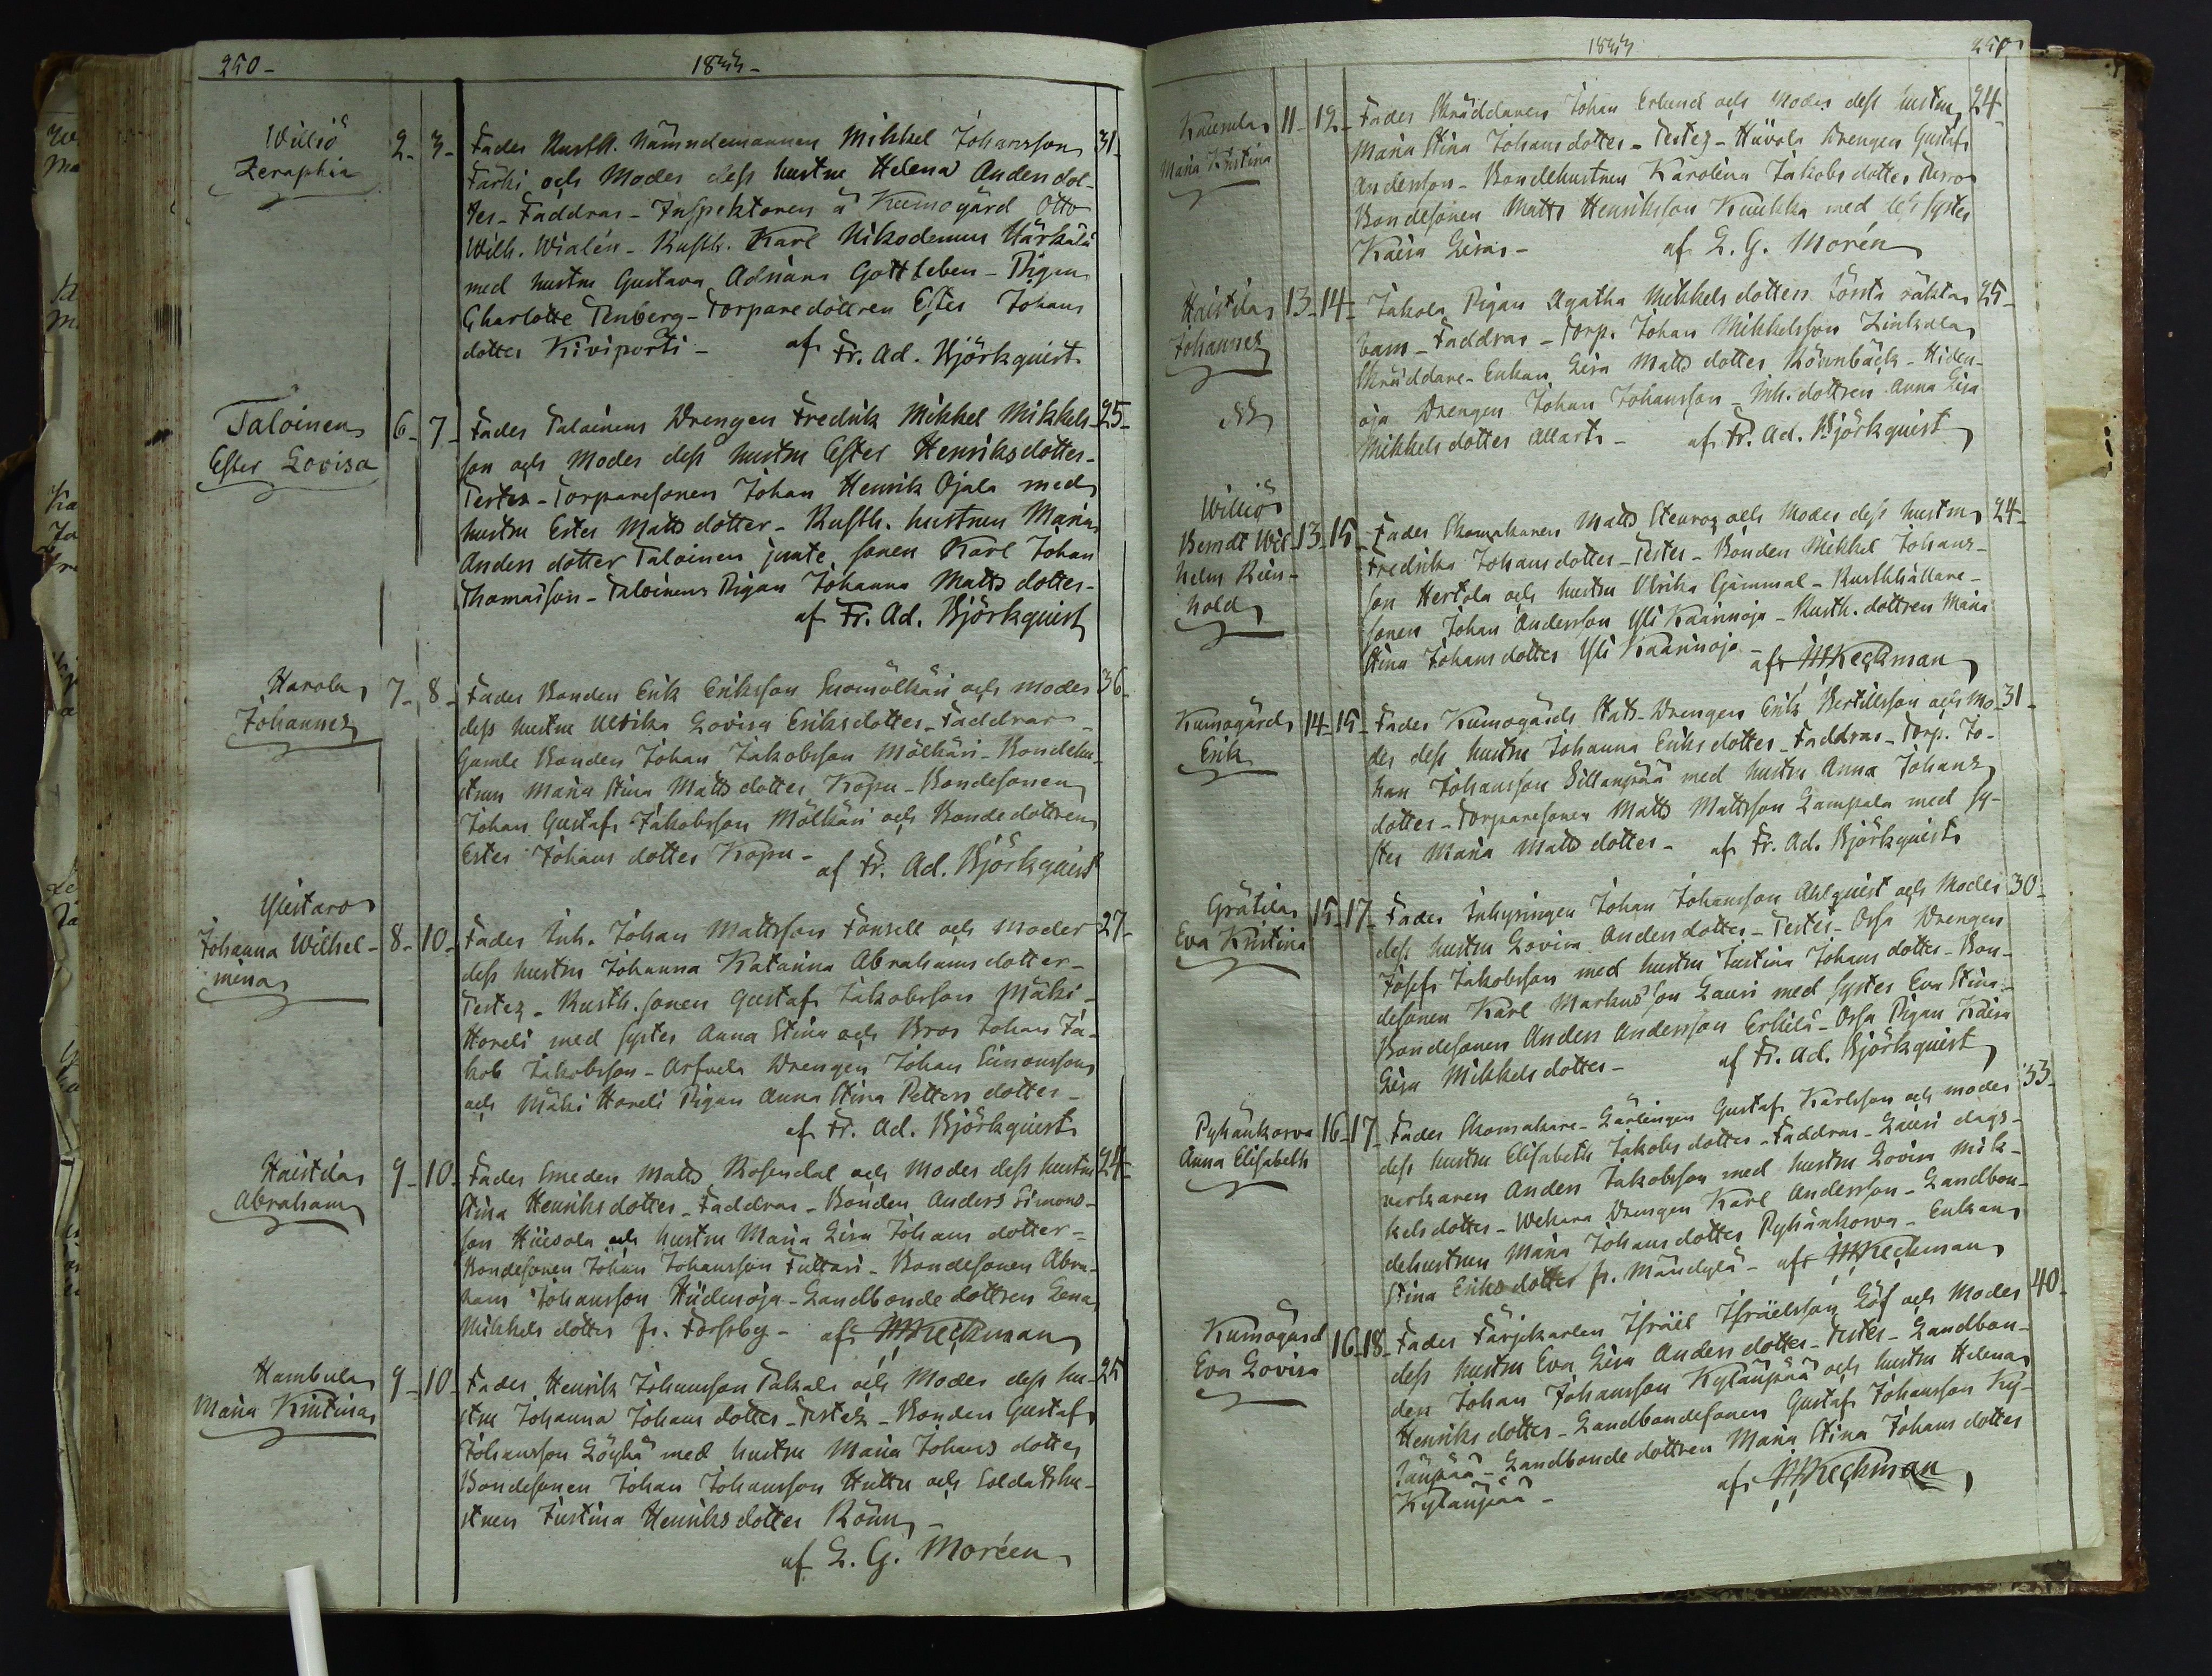 250-
18
Williö
Zeraphia
2-
3-
Fader Rusth. Nämndemannen Mikkel Johansson
31-
Färki och Moder dess hustru Helena Andersdot-
ter - Faddrar - Inspektoren å Kumogård Otto
Wilh. Wialén - Rusth. Karl Nikodemus Härkälä
med hustru Gustava Adriana Gottleben - Pigan
Charlotte Tenberg - Torparedottren Ester Johans
dotter Kiviporti - af Fr. Ad. Björkquist
Taloinen
Ester Lovisa
6-
7-
Fader Taloinens Drengen Fredrik Mikkel Mikkels-
25-
son och Moder dess hustru Ester Henriksdotter-
Testes - Torparesonen Johan Henrik Ojala med
hustru Ester Matts dotter - Rusth. hustrun Maria
Anders dotter Taloinen jemte sonen Karl Johan
Thomasson - Taloinens Pigan Johanna Matts dotter-
af Fr. Ad. Björkquist
Harola
Johannes
7-
8-
Fader Bonden Erik Eriksson Suomölkäri och moder
36-
dess hustru Ulrika Lovisa Eriksdotter - Faddrar -
Gamle Bonden Johan Jakobsson Mölkäri - Bondehu-
strun Maria Stina Matts dotter Kopu - Bondesonen
Johan Gustaf Jakobsson Mölkäri och Bondedottren
Ester Johans dotter Kopu - af Fr. Ad. Björkquist
Ylistaro
Johanna Wilhel-
mina
8-
10-
Fader Inh. Johan Mattsson Fonsell och moder
27-
dess hustru Johanna Katarina Abrahams dotter-
Testes - Rusth. sonen Gustaf Jakobsson Mäki-
Horeli med syster Anna Stina och Bror Johan Ja-
kob Jakobsson - Arfvela Drengen Johan Simonsson
och Mäki Horeli Pigan Anna Stina Petters dotter-
af Fr. Ad. Björkquist
Haistila
Abraham
9-
10-
Fader Smeden Matts Rosendal och Moder dess hustru
24-
Stina Henriksdotter - Faddrar - Bonden Anders Simons-
son Hiisola och hustru Maria Lisa Johans dotter-
Bondesonen Johan Johansson Fultari - Bondesonen Abra-
ham Johansson Hiidenoja - Landbonde dottren Lena
Mikkels dotter fr. Forsby - af Keckman
Hambula
Maria Kristina
9-
10-
Fader Henrik Johansson Takala och Moder dess hu-
25
stru Johanna Johans dotter - Testes - Bonden Gustaf
Johansson Löyhä med hustru Maria Johans dotter
Bondesonen Johan Johansson Huttu och Soldatshu-
strun Justina Henriks dotter Rönn -
af L. G. Moréen
18
251
Kaurula
Maria Kristina
11-
12-
Fader Skräddaren Johan Erlund och Moder dess hustru
24-
Maria Stina Johans dotter - Testes - Hiivola Drengen Gustaf
Andersson - Bondehustrun Karolina Jakobs dotter
Bondesonen Matts Henriksson Kuukka med dess syster
Kaisa Lisa - af L. G. Morén
Haistila
Johannes
13-
14-
Jakola Pigan Agatha Mikkels dotters första oäkta
25-
barn - Faddrar - Torp. Johan Mikkelsson Linkula
Skräddare-Enkan Lisa Matts dotter Rönnbäck - Hiden-
oja Drengen Johan Johansson - Inh. dottren Anna Lisa
Mikkels dotter Allarts - af Fr. Ad. Björkquist
Williö
Berndt Wil-
helm Rein-
hold
13-
15-
Fader Skomakaren Matts Stenros och Moder dess hustru
24-
Fredrika Johans dotter - Testes - Bonden Mikkel Johans-
son Hertola och hustru Ulrika Gammal - Rusthållare-
sonen Johan Andersson Yli Kaarinoja - Rusth. dottren Maria
Stina Johans dotter Yli Kaarinoja -
af Keckman
Kumogård
Erik
14-
15-
Fader Kumogårds Stats-Drengen Erik Bertilsson och Mo-
31-
der dess hustru Johanna Eriks dotter - Faddrar - Torp. Jo-
han Johansson Sillanpää med hustru Anna Johans
dotter - Torparesonen Matts Mattsson Lampala med sy-
ster Maria Matts dotter - af Fr. Ad. Björkquist
Grätila
Eva Kristina
15-
17-
Fader Inhysingen Johan Johansson Ahlquist och Moder
30-
dess hustru Lovisa Anders dotter - Testes - Ossa Drengen
Josef Jakobsson med hustru Justina Johans dotter - Bon-
desonen Karl Markusson Lauri med syster Eva Stina -
Bondesonen Anders Andersson Erkilä - Ossa Pigan Kaisa
Lisa Mikkels dotter - af Fr. Ad. Björkquist
Pyhänkorva
Anna Elisabeth
16-
17-
Fader Skomakare-Lärlingen Gustaf Karlsson och moder
33-
dess hustru Elisabeth Jakobs dotter - Faddrar - Lauri dags-
verkaren Anders Jakobsson med hustru Lovisa Mik-
kels dotter - Wekara Drengen Karl Andersson - Landbon-
dehustrun Maria Johans dotter Pyhänkorva - Enkan
Stina Eriks dotter fr. Mändylä - af Keckman
Kumogård
Eva Lovisa
16-
18-
Fader Färjekarlen Israel Israelsson Löf och Moder
40-
dess hustru Eva Lisa Anders dotter - Testes - Landbon-
den Johan Johansson Kylänpää och hustru Helena
Henriks dotter - Landbondesonen Gustaf Johansson Ky-
länpää - Landbonde dottren Maria Stina Johans dotter
Kylänpää -
af Keckman